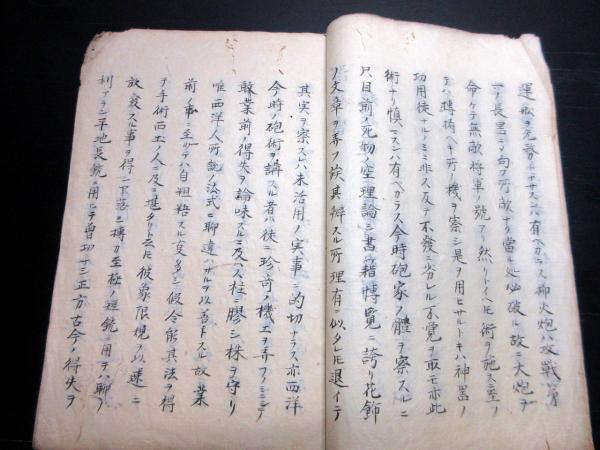 運㪅ヲ充發セサスンハ有ヘカラス抑火炮ハ攻戰ノ第
一ノ長噐ニノ向フ所敵ナク當ル処必破ル故ニ大炮ヲ
命ケテ無敵将軍ノ號アリ然リトイヘ𪜈術ヲ施ス至ノ
ヲハ搏擣ヘキ所ノ機ヲ察シ是ヲ用ヒサルトキハ神噐ノ
功用徒ナルノミニ非ス反テ不發ニ劣レル不覺ヲ取モ亦此
術ナリ慎マスンハ有ヘカラス今時砲家ノ體ヲ察スルニ
只目前ノ死物ノ空理論シ書籍博覧ニ誇リ花飾
ノ文章ヲ弄フ故其辨スル所理有ニ似タレ𪜈退イテ
其実ヲ察スレハ未活用ノ実事ニ的切ナラス亦西洋
今時ノ砲術ヲ講スル者ハ徒ニ珍奇ノ機工ヲ弄フノミニシテ
敢業前ノ得失ヲ論味スルニ及ハス柱ニ膠シ株ヲ守リ
唯西洋人所説ノ法式ニ聊違ハサルヲ以善トスル故業
前ノ事ニ至リテハ自粗糙スル叓多シ假令能其法ヲ得
ヲ手術西土ノ人ニ及ニ堪タリト云𪜈彼象限規ヲ以遅ニ
放發スル事ヲ得一下落シ搏力至極ノ短銃ニ用テハ聊ノ
利アラン平地長銃ニ用ヒテ曽切ナシ正方古今ノ得失ヲ